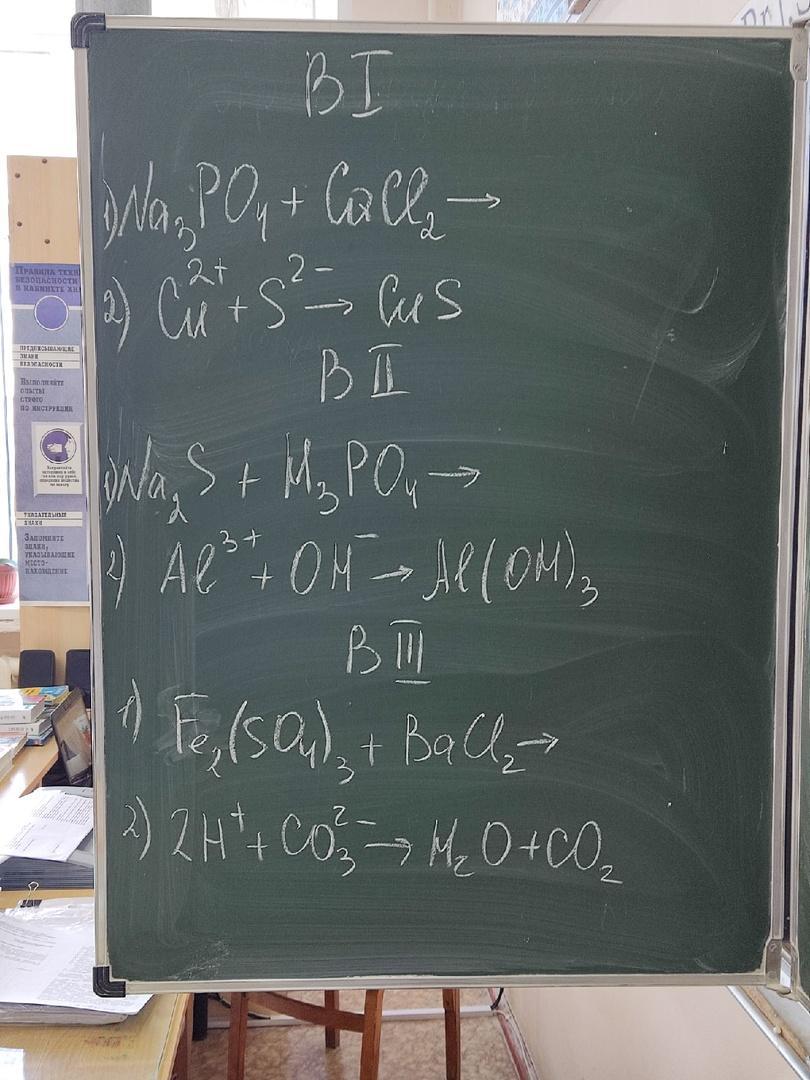 В I
1) Na₃PO₄ + CaCl₂ →
2) Cu²⁺ + S²⁻ → CuS
В II
1) Na₂S + H₃PO₄ →
2) Al³⁺ + OH⁻ → Al(OH)₃
В III
1) Fe₂(SO₄)₃ + BaCl₂ →
2) 2H⁺ + CO₃²⁻ → H₂O + CO₂
ПРАВИЛА ТЕХН
БЕЗОПАСНОСТИ
В КАБИНЕТЕ ХИ
ПРЕДПИСЫВАЮЩИЕ
ЗНАКИ
БЕЗОПАСНОСТИ
ВЫПОЛНЯЙТЕ
ОПЫТЫ
СТРОГО
ПО ИНСТРУКЦИИ
УКАЗАТЕЛЬНЫЕ
ЗНАКИ
ЗАПОМНИТЕ
ЗНАКИ,
УКАЗЫВАЮЩИЕ
МЕСТО-
НАХОЖДЕНИЕ